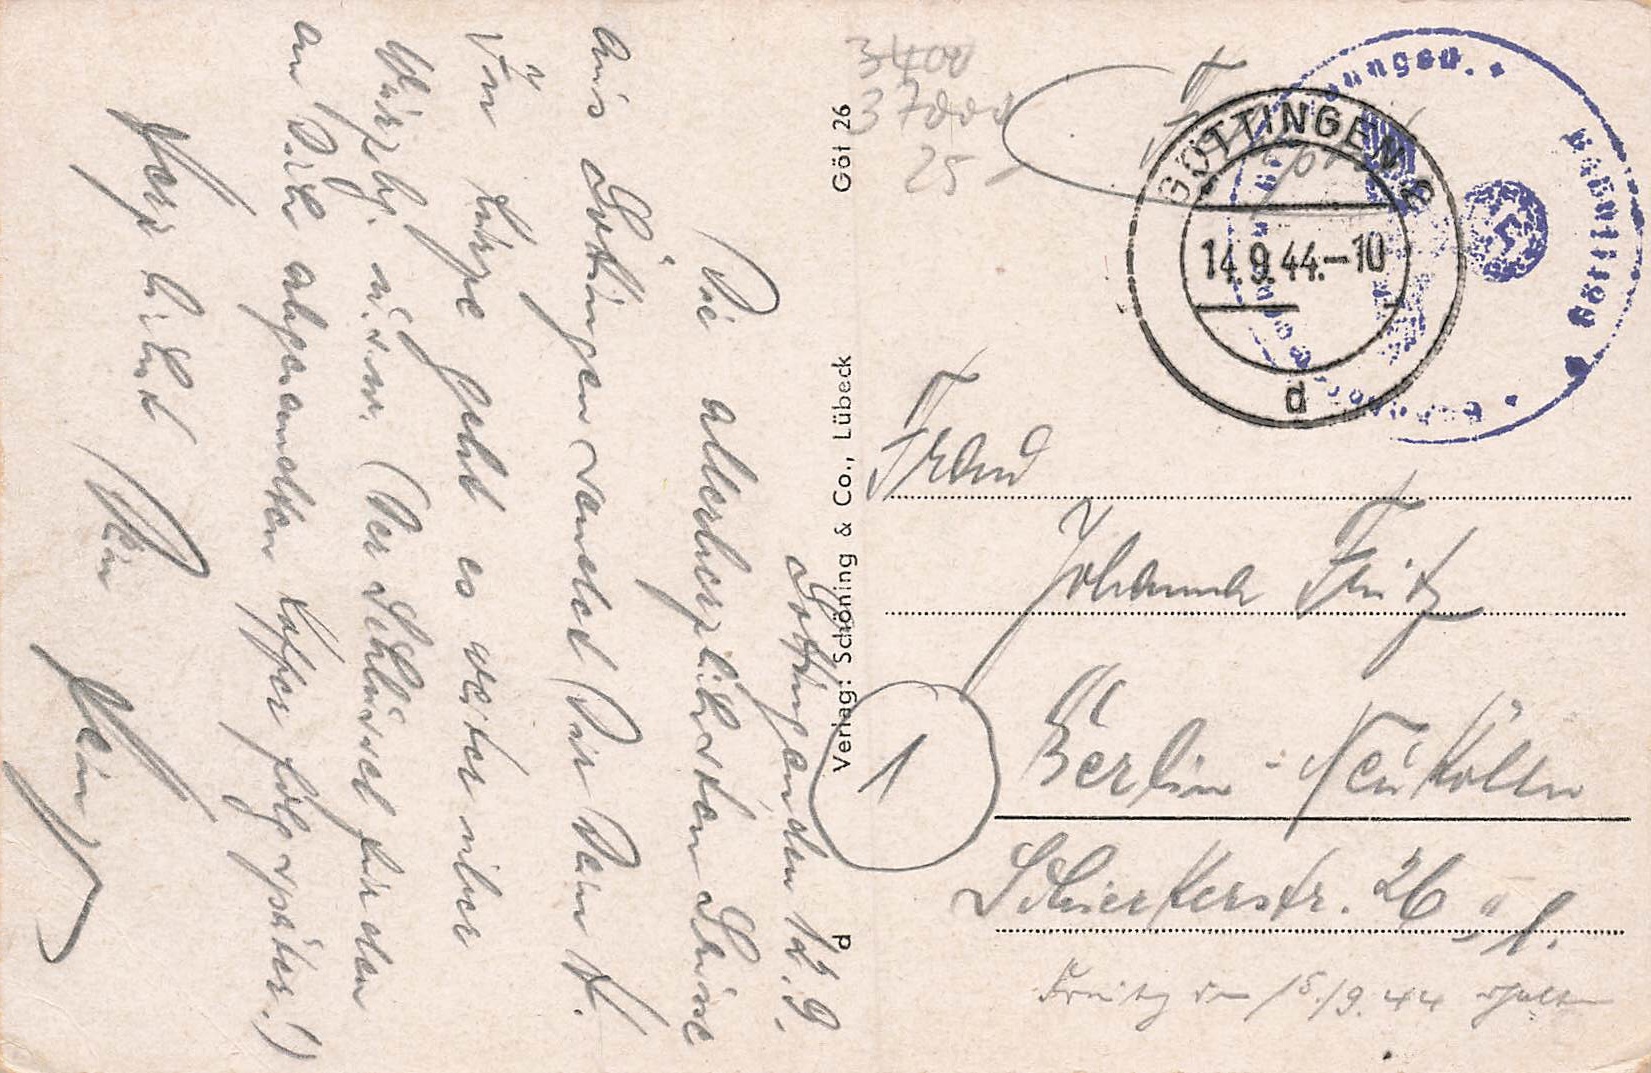 Göttingen den 12.9.
Die allerherzlichsten Grüsse
aus Göttingen sendet Dir Dein H.
Von hier geht es weiter über
Würzbg. nüber. (Der Schlüssel für den
an Dich abgesandten Koffer folgt später.)
Herzlichst Dein
Heinz
Göt 26
Verlag: Schöning & Co., Lübeck
d
3400
37000
25
GÖTTINGEN 2
14.9.44.-10
d
1
Frau
Johanna Fritz
Berlin-Neukölln
Schierkerstr. 26 II l.
Freitag den 15./9.44 erhalten